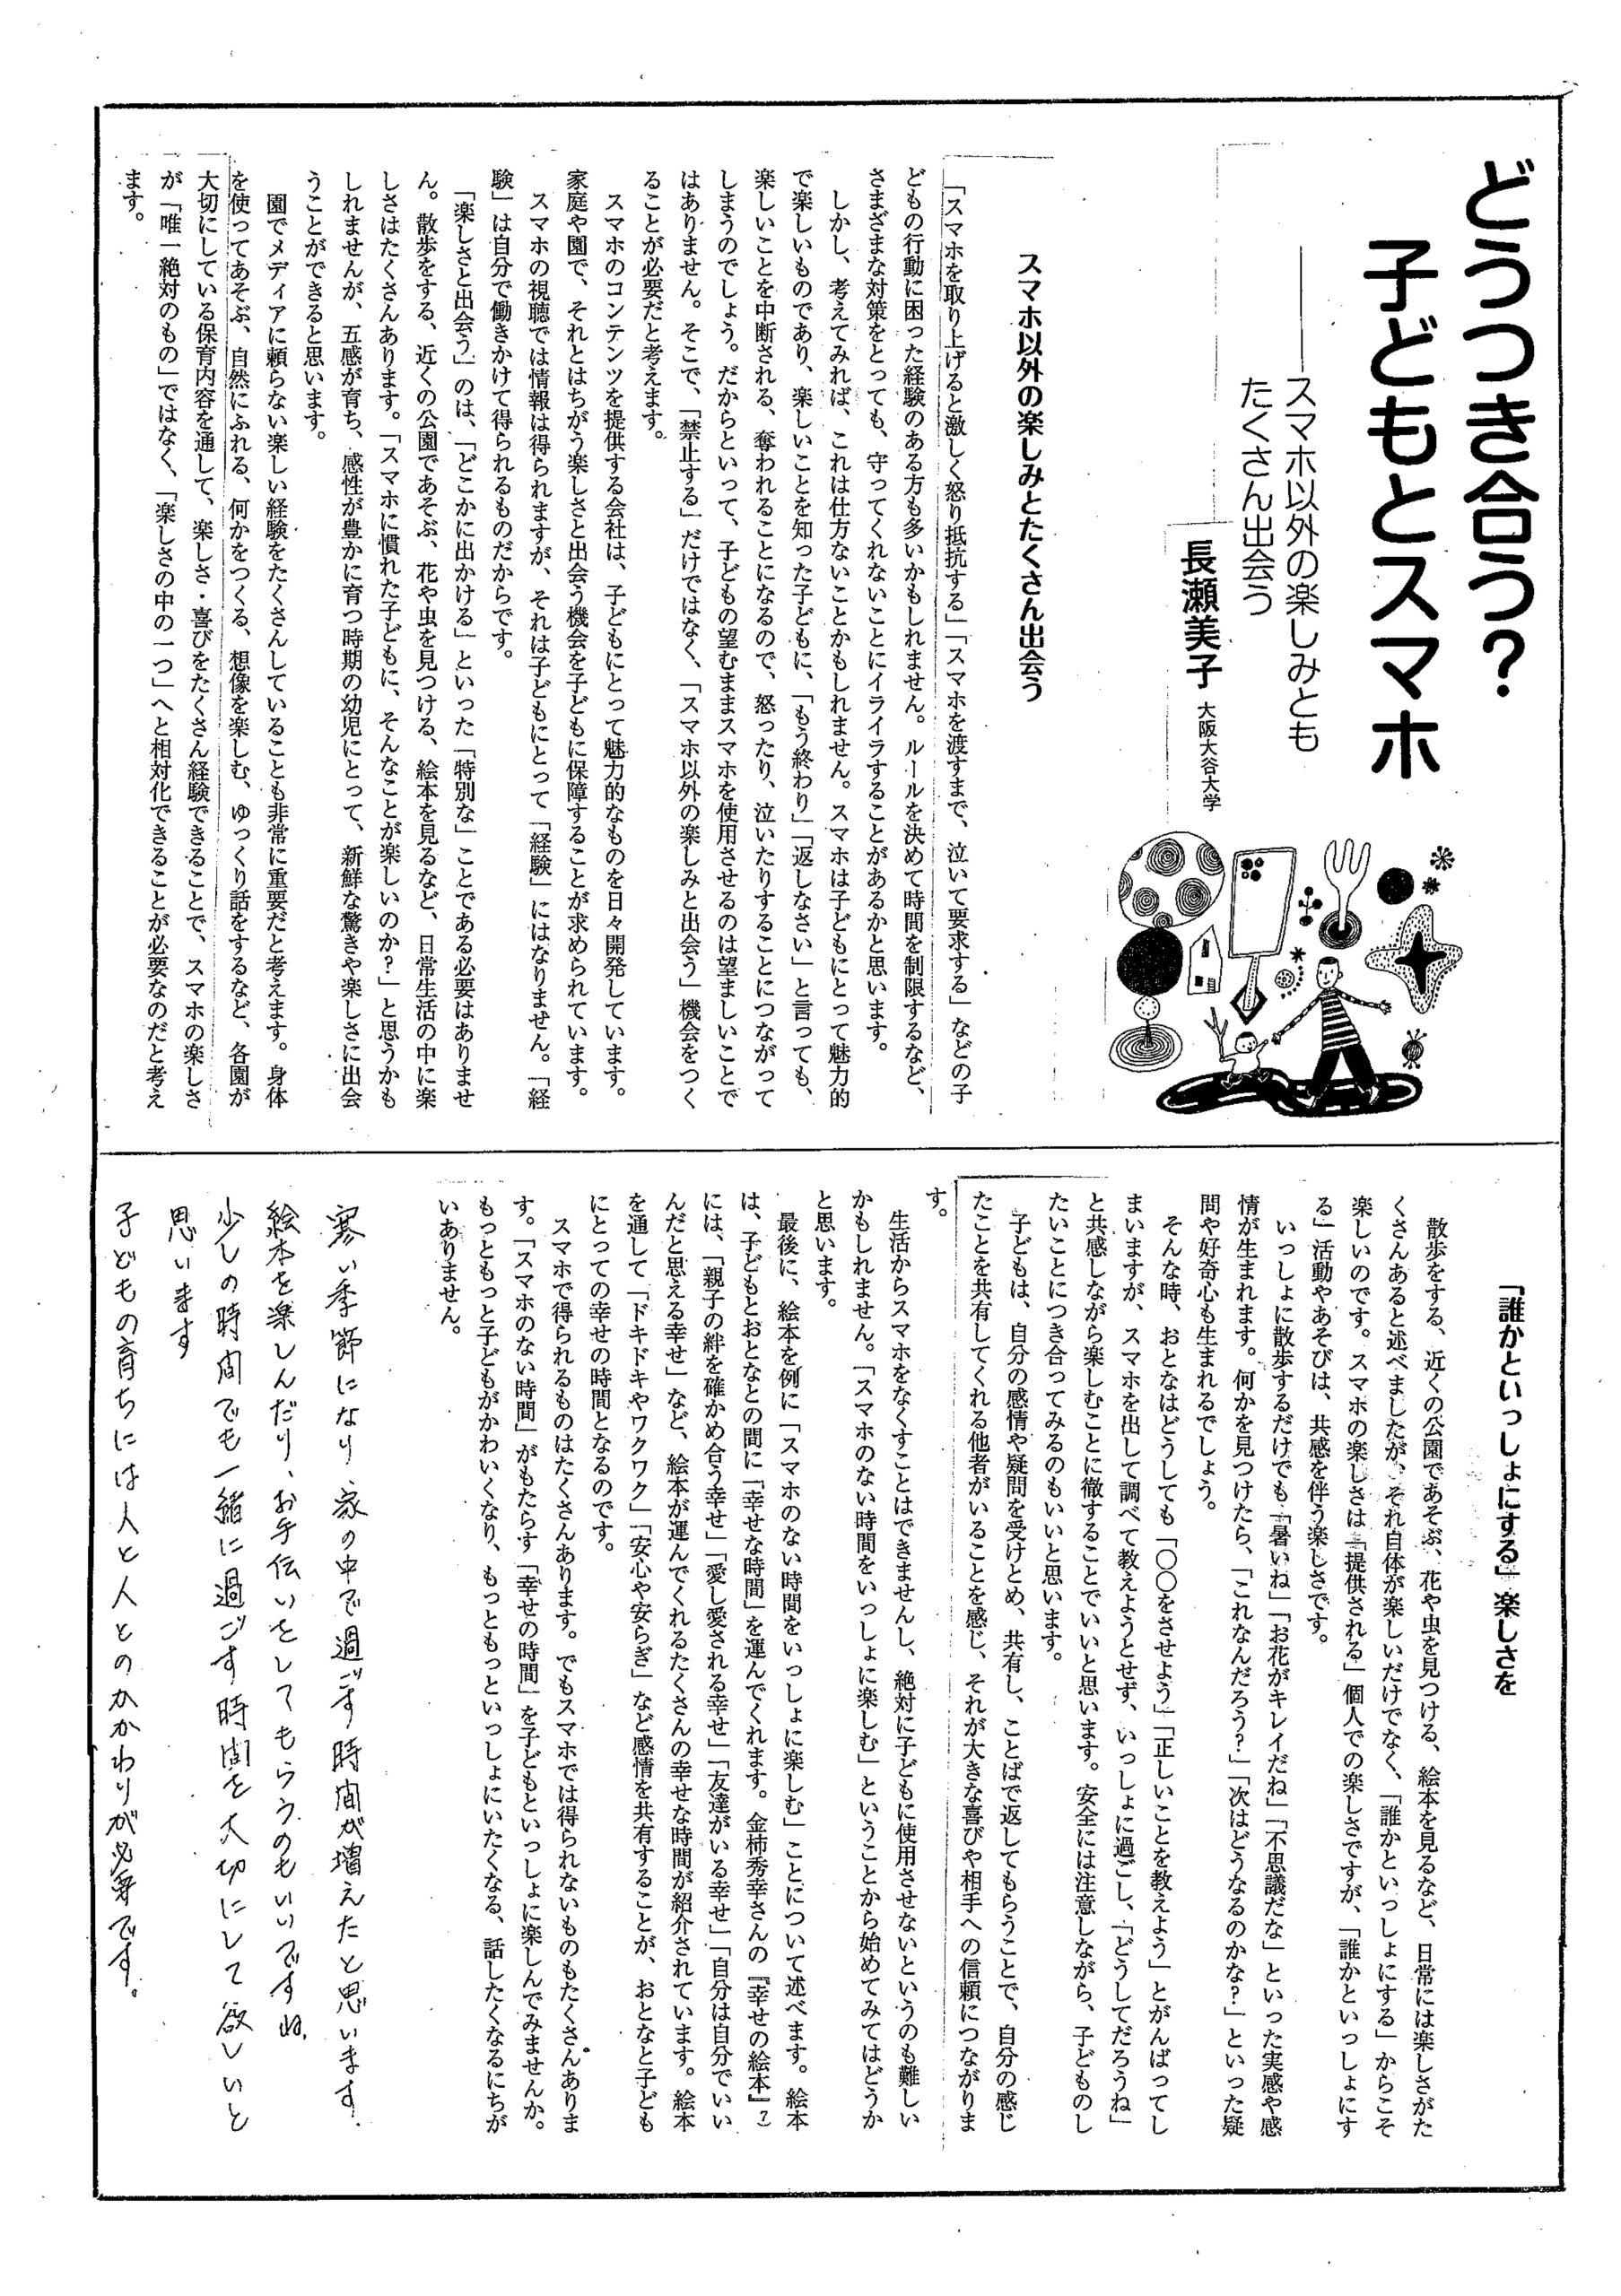 どうつき合う?
子どもとスマホ
――スマホ以外の楽しみとも
たくさん出会う
長瀬美子 大阪大谷大学
スマホ以外の楽しみとたくさん出会う
「スマホを取り上げると激しく怒り抵抗する」「スマホを渡すまで、泣いて要求する」などの子
どもの行動に困った経験のある方も多いかもしれません。ルールを決めて時間を制限するなど、
さまざまな対策をとっても、守ってくれないことにイライラすることがあるかと思います。
しかし、考えてみれば、これは仕方ないことかもしれません。スマホは子どもにとって魅力的
で楽しいものであり、楽しいことを知った子どもに、「もう終わり」「返しなさい」と言っても、
楽しいことを中断される、奪われることになるので、怒ったり、泣いたりすることにつながって
しまうのでしょう。だからといって、子どもの望むままスマホを使用させるのは望ましいことで
はありません。そこで、「禁止する」だけではなく、「スマホ以外の楽しみと出会う」機会をつく
ることが必要だと考えます。
スマホのコンテンツを提供する会社は、子どもにとって魅力的なものを日々開発しています。
家庭や園で、それとはちがう楽しさと出会う機会を子どもに保障することが求められています。
スマホの視聴では情報は得られますが、それは子どもにとって「経験」にはなりません。「経
験」は自分で働きかけて得られるものだからです。
「楽しさと出会う」のは、「どこかに出かける」といった「特別な」ことである必要はありませ
ん。散歩をする、近くの公園であそぶ、花や虫を見つける、絵本を見るなど、日常生活の中に楽
しさはたくさんあります。「スマホに慣れた子どもに、そんなことが楽しいのか?」と思うかも
しれませんが、五感が育ち、感性が豊かに育つ時期の幼児にとって、新鮮な驚きや楽しさに出会
うことができると思います。
園でメディアに頼らない楽しい経験をたくさんしていることも非常に重要だと考えます。身体
を使ってあそぶ、自然にふれる、何かをつくる、想像を楽しむ、ゆっくり話をするなど、各園が
大切にしている保育内容を通して、楽しさ・喜びをたくさん経験できることで、スマホの楽しさ
が「唯一絶対のもの」ではなく、「楽しさの中の一つ」へと相対化できることが必要なのだと考え
ます。
「誰かといっしょにする」楽しさを
散歩をする、近くの公園であそぶ、花や虫を見つける、絵本を見るなど、日常には楽しさがた
くさんあると述べましたが、それ自体が楽しいだけでなく、「誰かといっしょにする」からこそ
楽しいのです。スマホの楽しさは「提供される」個人での楽しさですが、「誰かといっしょにす
る」活動やあそびは、共感を伴う楽しさです。
いっしょに散歩するだけでも「暑いね」「お花がキレイだね」「不思議だな」といった実感や感
情が生まれます。何かを見つけたら、「これなんだろう?」「次はどうなるのかな?」といった疑
問や好奇心も生まれるでしょう。
そんな時、おとなはどうしても「〇〇をさせよう」「正しいことを教えよう」とがんばってし
まいますが、スマホを出して調べて教えようとせず、いっしょに過ごし、「どうしてだろうね」
と共感しながら楽しむことに徹することでいいと思います。安全には注意しながら、子どものし
たいことにつき合ってみるのもいいと思います。
子どもは、自分の感情や疑問を受けとめ、共有し、ことばで返してもらうことで、自分の感じ
たことを共有してくれる他者がいることを感じ、それが大きな喜びや相手への信頼につながりま
す。
生活からスマホをなくすことはできませんし、絶対に子どもに使用させないというのも難しい
かもしれません。「スマホのない時間をいっしょに楽しむ」ということから始めてみてはどうか
と思います。
最後に、絵本を例に「スマホのない時間をいっしょに楽しむ」ことについて述べます。絵本
は、子どもとおとなとの間に「幸せな時間」を運んでくれます。金柿秀幸さんの『幸せの絵本』
には、「親子の絆を確かめ合う幸せ」「愛し愛される幸せ」「友達がいる幸せ」「自分は自分でいい
んだと思える幸せ」など、絵本が運んでくれるたくさんの幸せな時間が紹介されています。絵本
を通して「ドキドキやワクワク」「安心や安らぎ」など感情を共有することが、おとなと子ども
にとっての幸せの時間となるのです。
スマホで得られるものはたくさんあります。でもスマホでは得られないものもたくさんありま
す。「スマホのない時間」がもたらす「幸せの時間」を子どもといっしょに楽しんでみませんか。
もっともっと子どもがかわいくなり、もっともっといっしょにいたくなる、話したくなるにちが
いありません。
寒い季節になり 家の中で過ごす時間が増えたと思います.
絵本を楽しんだり、お手伝いをしてもらうのもいいですね.
少しの時間でも一緒に過ごす時間を大切にして欲しいと
思います
子どもの育ちには人と人とのかかわりが必要です.